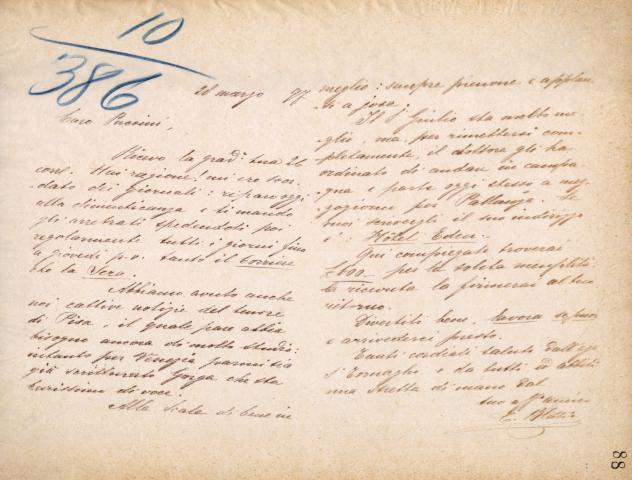 10
386
28 marzo 97
Caro Puccini,
Ricevo la grad. tua 26
corr. Hai ragione! mi ero scor-
dato dei giornali: riparo oggi
alla dimenticanza e ti mando
gli arretrati spedendoli poi
regolarmente tutti i giorni fino
a giovedì p.v. tanto il Corriere
che la Sera.
Abbiamo avuto anche
noi cattive notizie del tenore
di Pisa, il quale pare abbia
bisogno ancora di molto studio:
intanto per Venezia
già scritturato Gorga che sta
benissimo di voce.
Alla Scala di bene in
meglio: sempre pienone e applau-
si a josa.
Il S. Giulio sta molto me-
glio, ma per rimettersi com-
pletamente, il dottore gli ha
ordinato di andare in campa-
gna e parte oggi stesso a mez-
zogiorno per Pallanza. Se
vuoi scrivergli il suo indirizzo
è: Hôtel Eden.
Qui compiegate troverai
per la solita
la ricevuta la firmerai al tuo
ritorno.
Divertiti bene, lavora se puoi
e arrivederci presto.
Tanti cordiali saluti dall'
Tornaghi e da tutti
una stretta di mano dal
tuo aff. amico
88